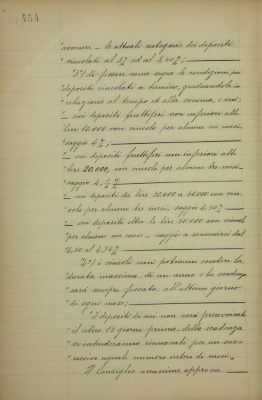 454
"avvenire — le attuali categorie dei depositi
"vincolati al 3% ed al 3,50%; —
"3°) di fissare come segue le condizioni pei
"depositi vincolati a termine, graduandole in
"relazione al tempo ed alla somma, e cioè:
"— sui depositi fruttiferi non inferiori alle
"lire 10.000 con vincolo per almeno sei mesi
"saggio 4%; —
"— sui depositi fruttiferi non inferiori alle
"lire 20,000, con vincolo per almeno tre mesi
"saggio 4
"— sui depositi da lire 30.000 a 50.000 con vin-
"colo per almeno due mesi, saggio 4,50%;
"— sui depositi oltre le lire 50.000 con vincolo
"per almeno un mese — saggio a convenirsi dal
"4,50 al 4,75%
"4°) i vincoli non potranno eccedere la
"durata massima di un anno e la scadenza
"sarà sempre fissata all'ultimo giorno
"di ogni mese; —
"I depositi di cui non sarà preavvisato
"il ritiro 15 giorni prima della scadenza
"si intenderanno rinnovati per un suc-
"cessivo uguale numero intero di mesi".
Il Consiglio unanime approva. —